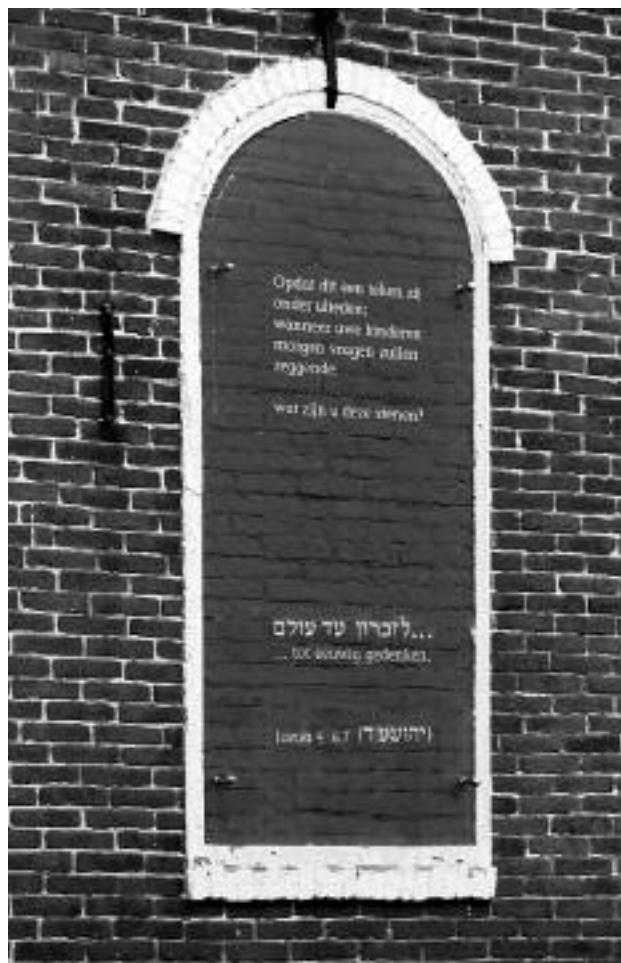 Opdat dit een teken zij
onder ulieden;
wanneer uwe kinderen
morgen vragen zullen
zeggende
wat zijn u deze stenen?
...לזכרון עד עולם
... tot eeuwig gedenken.
Jozua 4 6.7 (יהושע ד')